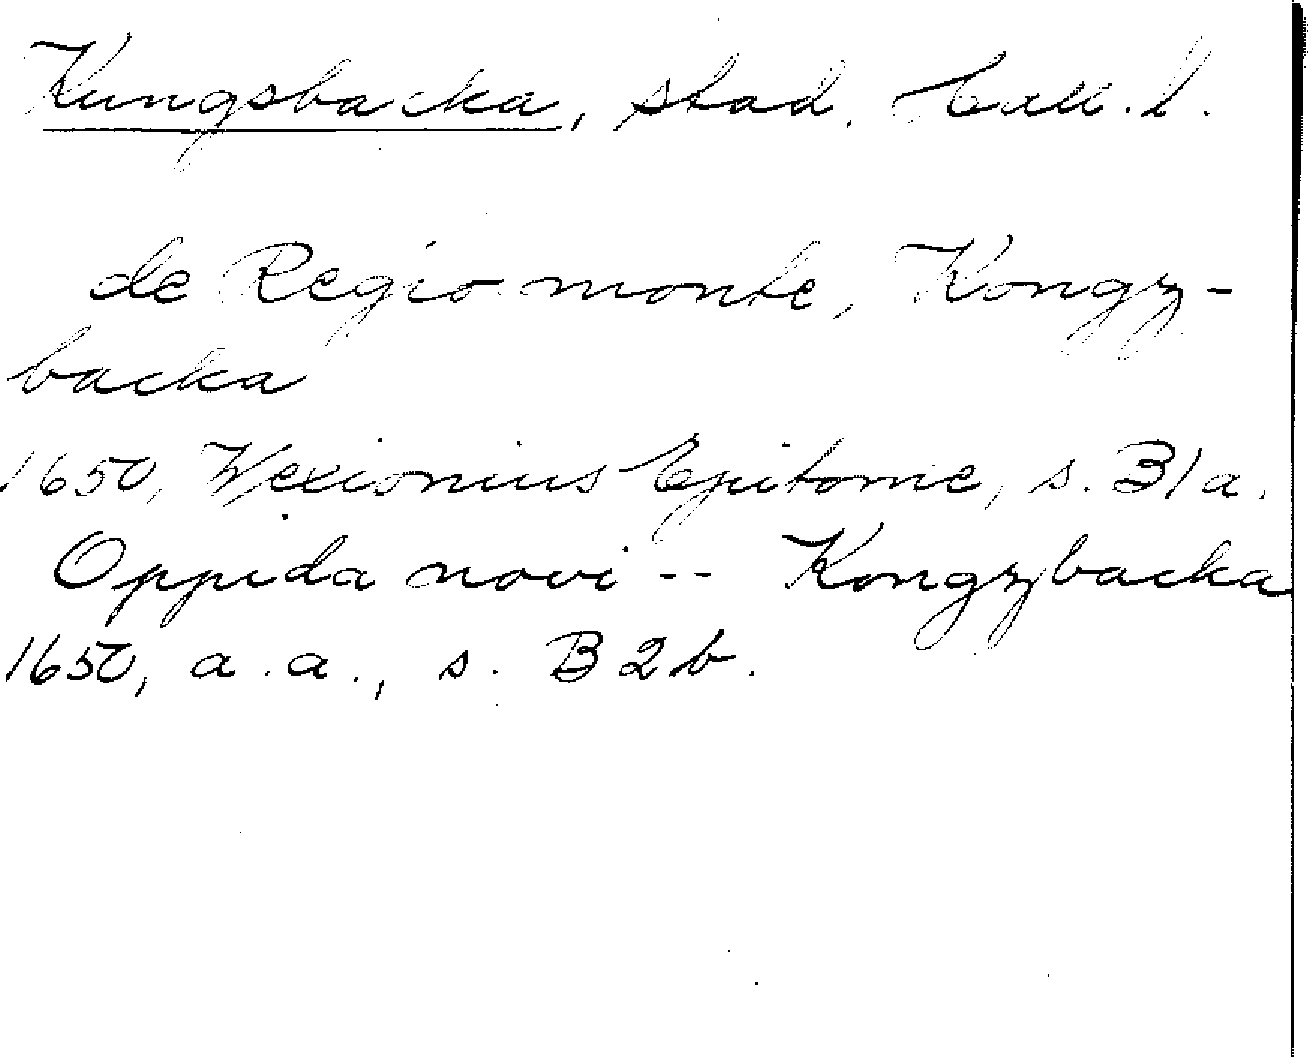 Kungsbacka, stad. Hall. l.
de Regio monte, Kongz-
backa
1650, Wexionius Epitome, s. B1a.
Oppida novi -- Kongzbacka
1650, a.a., s. B2b.